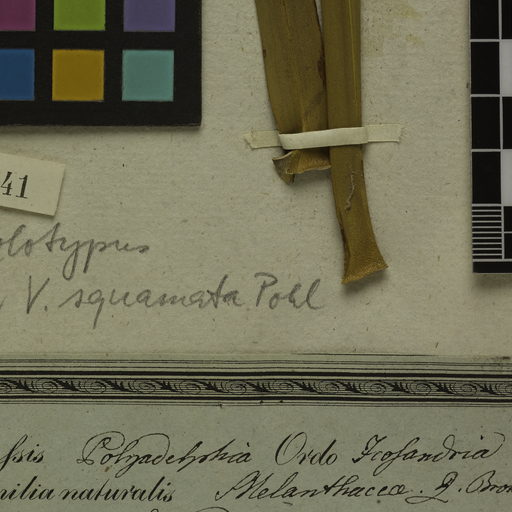 41
olotypus
V. squamata Pohl
ssis Polyadelphia Ordo Icosandria
milia naturalis Melanthaceæ. R. Brow